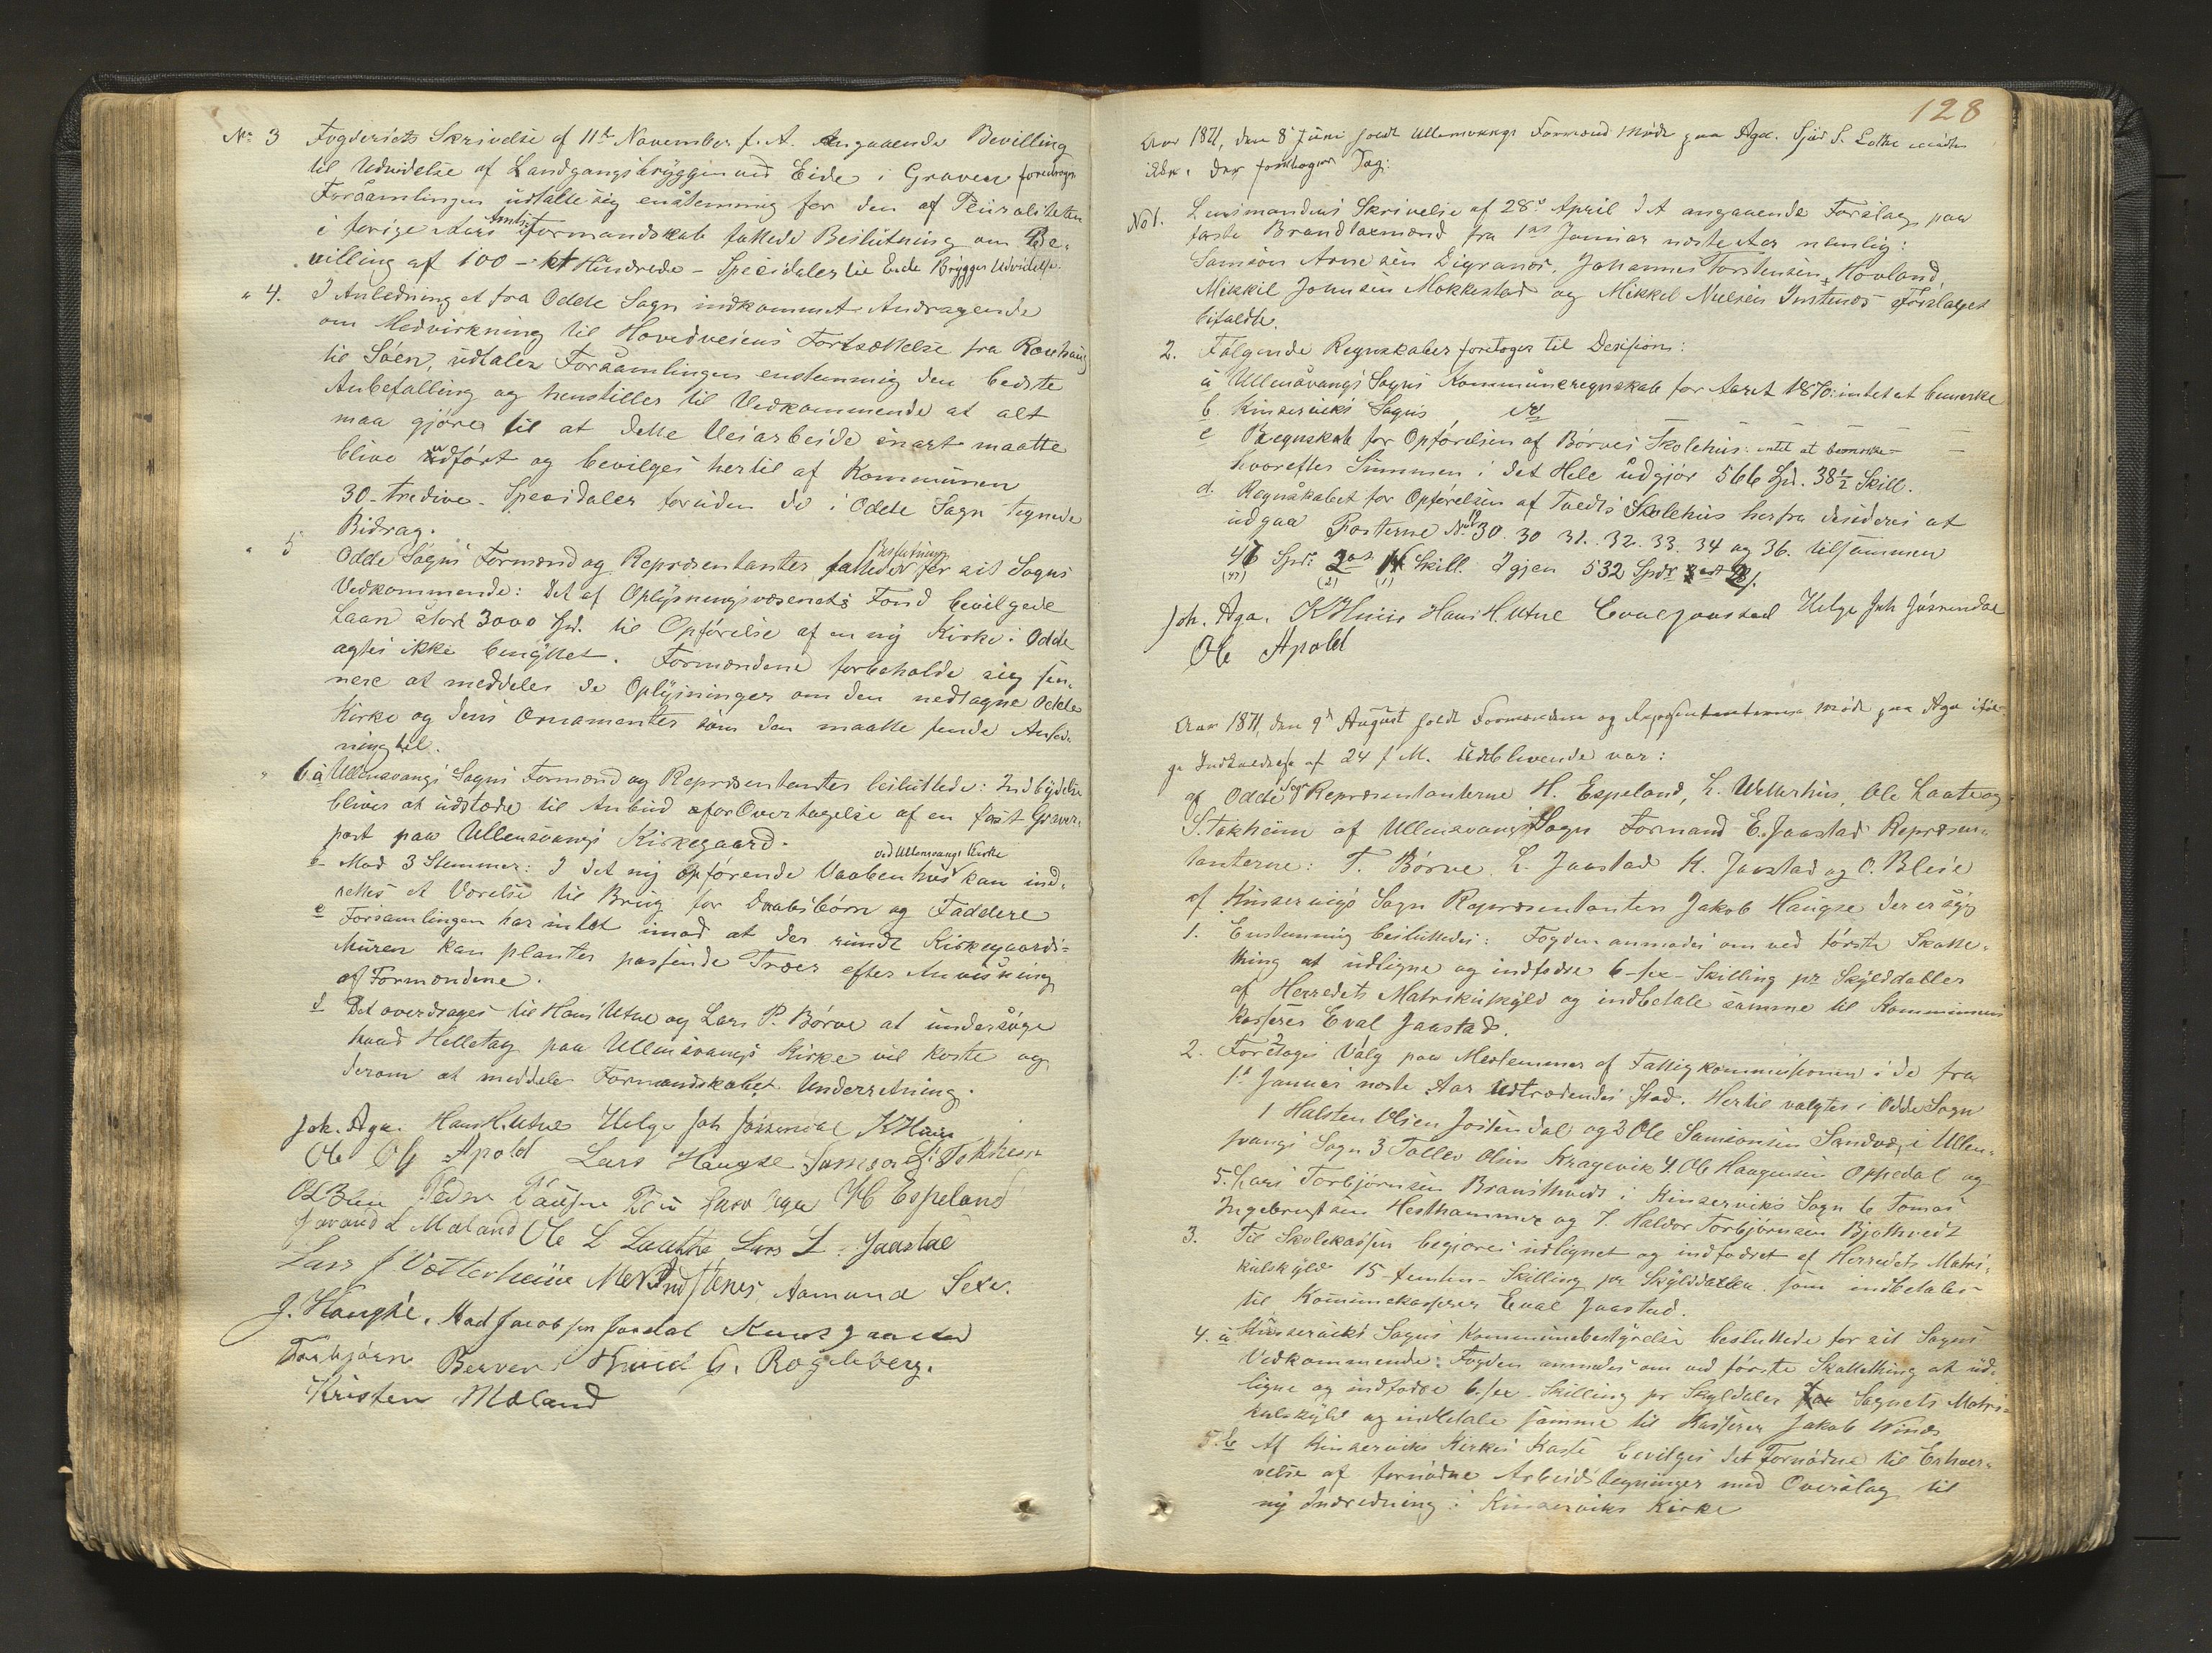 No 3 Fogderiets Skrivelse af 11te November f. A. Angaaende Bevilling
til Udvidelse af Landgangsbryggen ved Eide i Graven foredroges
Forsamlingen udtalte sig enstemmig for den af Pluraliteten
i forige Aars Amtsformandskab fattede Beslutning om Be-
villing af 100 - et Hundrede - Specidaler til Eide Brygges Udvidelse.
" 4. I Anledning et fra Odde Sogn indkommet Andragende
om Medvirkning til Hovedveiens Fortsættelse fra
til Søen, udtaler Forsamlingen enstemmig den bedste
Anbefalling og henstiller til Vedkommende at alt
maa gjøres til at dette Veiarbeide snart maatte
blive udført og bevilges hertil af Kommunen
30 - tredive - Spesidaler foruden de i Odde Sogn tegnede
Bidrag.
" 5 Odde Sogns Formænd og Repræsentanter fattede Beslutning for sit Sogns
Vedkommende: Det af Oplysningsvæsenets Fond bevilgede
Laan stort 3000 Spd. til Opførelse af en ny Kirke i Odde
agtes ikke benyttet. Formændene forbeholde sig se-
nere at meddeles de Oplysninger om den nedtagne Odde
Kirke og dens Ornamenter som den maatte finde Anled-
ning til.
" 6 a Ullensvangs Sogns Formænd og Repræsentanter besluttede: Indbydelse
bliver at udstæde til Anbud for Overtagelse af en fast Graver-
post paa Ullensvangs Kirkegaard.
b Mod 3 Stemmer: I det ny opførende Vaabenhus ved Ullensvangs Kirke kan ind-
rettes et Værelse til Brug for Daabsbørn og Faddere
c Forsamlingen har intet imod at der rundt Kirkegaards-
Muren kan plantes passende Træer efter Anvisning
af Formændene.
d Det overdrages til Hans Utne og Lars P. Børve at undersøge
hvad Helletag paa Ullensvangs Kirke vil koste og
derom at meddele Formandskabet Underretning.
Joh. Aga. Hans H. Utne Helge Joh Jøssendal K Huus
Ole Ols Apold Lars Haugse Samson L: Tokheim
O L Bleie Peder Aga H O Espeland
L Måland Ole L Laathe Lars L. Jaastad
Lars J Vetterhuus M N Indstenes Aamund Sexe.
J. Haughe. Mad Jacobsen Joerdal Knut Jaastad
Torbjørn Berven Knud G. Rogdeberg.
Kristen Måland
128
Aar 1871, den 8de Juni holdt Ullensvangs Formænd Møde paa Aga. Sjur S. Lothe mødte
ikke. Der foretoges Sag:
No 1. Lensmandens Skrivelse af 28de April d A angaaende Forslag paa
faste Brandtaxmænd fra 1ste Januar næste Aar nemlig:
Samson Arnesen Digranes, Johannes Torstensen Hovland,
Mikkel Johnsen Mokkestad og Mikkel Nielsen Instenes Forslaget
bifaldt.
2. Følgende Regnskaber foretoges til Desision:
a Ullensvangs Sogns Kommuneregnskab for Aaret 1870: intet at bemerke
b. Kinservicks Sogns do — — —
c Regnskab for Opførelsen af Børves Skolehus: intet at bemerke —
hvorefter Summen i det Hele udgjør 566 Spd. 38 1/2 Skill.
d. Regnskabet for Opførelsen af Tvedts Skolehus herfra desideres at
udgaa Posterne No 19 30. 30 31. 32. 33. 34 og 36. tilsammen
Spd: 2 ort Skill. Igjen 532 Spdr
(47) (2) (1)
Joh. Aga. K Huus Hans H. Utne Eval Jaastad Helge Joh Jøssendal
Ole Apold
Aar 1871, den 9de August holdt Formændene og Repræsentanterne Møde paa Aga iføl-
ge Indkaldelse af 24 f M. Udeblivende var:
af Odde Sogn Repræsentanterne H. Espeland, L. Vetterhus, Ole Laate og
S. Tokheim af Ullensvangs Sogn Formand E. Jaastad Repræsen-
tanterne: T. Børve, L. Jaastad K. Jaastad og O. Bleie
af Kinserviks Sogn Repræsentanten Jakob Haugse
1. Enstemmig besluttedes: Fogden anmodes om ved første Skatte-
thing at udligne og indfodre 6 - sex - Skilling pr Skylddaller
af Herredets Matrikulskyld og indbetale samme til Kommunens
Kasserer Eval Jaastad.
2. Foretoges Valg paa Medlemmer af Fattigkommissionen i de fra
1ste Januar næste Aar udtrædendes Sted. Hertil valgtes i Odde Sogn
1 Halsten Olsen Jøssendal og 2 Ole Samsonsen Sandven, i Ullen-
svangs Sogn 3 Tollev Olsen Kragevik 4. Ole Haagensen Oppedal og
5. Lars Torbjørnsen Bransthveit i Kinserviks Sogn 6 Tomas
Ingebrigtsen Hesthammer og 7. Haldor Torbjørnsen Bjotveit
3. Til Skolekassen begjæres udlignet og indfodret af Herredets Matri-
kulskyld 15 - femten - Skilling pr Skylddaller som indbetales
til Kommunekasserer Eval Jaastad.
4. a Kinservicks Sogns Kommunebestyrelse besluttede for sit Sogns
Vedkommende: Fogden anmodes om ved første Skattething at ud-
ligne og indfodre 6 - sex - Skilling pr Skyldaler af Sognets Matri-
kulskyld og indbetale samme til Kasserer Jakob Winæs
5. b Af Kinserviks Kirkes Kasse bevilges det Fornødne til Erhver-
velse af fornødne Arbeidstegninger med Overslag til
ny Indredning i Kinserviks Kirke